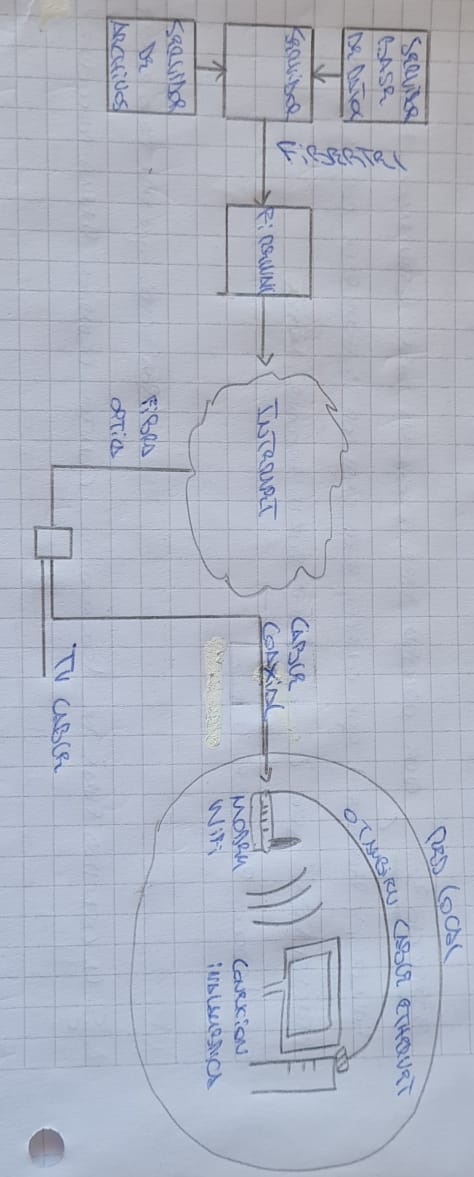 SERVIDOR
BASE
DE DATA
SERVIDOR
SERVIDOR
DE
ARCHIVOS
FIREWALL
INTERNET
FIBRA
OPTICA
CABLE
COAXIAL
TV CABLE
RED LOCAL
O TAMBIEN CABLE ETHERNET
MODEM
WIFI
CONEXION
INALAMBRICA